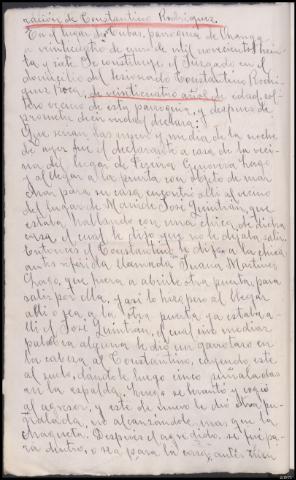 ración de Constantino Rodríguez
En el lugar de parroquia de
a veinticinco de enero de mil novecientos trein
ta y siete. Se constituye el Juzgado en el
domicilio del lesionado Constantino Rodrí
guez de veinticuatro años de edad, sol
tero vecino de esta parroquia, y después de
prometer decir verdad, declara:
Que serían las nueve y media de la noche
de ayer fue el declarante a casa de la veci
na del lugar de
y al llegar a la puerta con objeto de mar
char para su casa encontró allí al vecino
del lugar de José Quintián, que
estaba hablando con una chica de dicha
casa, el cual le dijo que no le dejaba salir
entonces, el Constantino le dijo a la chica
antes referida llamada Juana Martínez
que fuera a abrirle otra puerta para
salir por ella, y así lo hizo, pero al llegar
allí o sea a la otra puerta ya estaba a
llí el José Quintián, el cual sin mediar
palabra alguna le dio un garrotazo en
la cabeza al Constantino, cayendo este
al suelo, dándole luego cinco puñaladas
en la espalda, luego se levantó y cogió
al agresor, y este de nuevo le dio otra pu
ñalada, no alcanzándole mas que la
chaqueta. Después el agredido, se fue pa
ra dentro, o sea para la casa antes